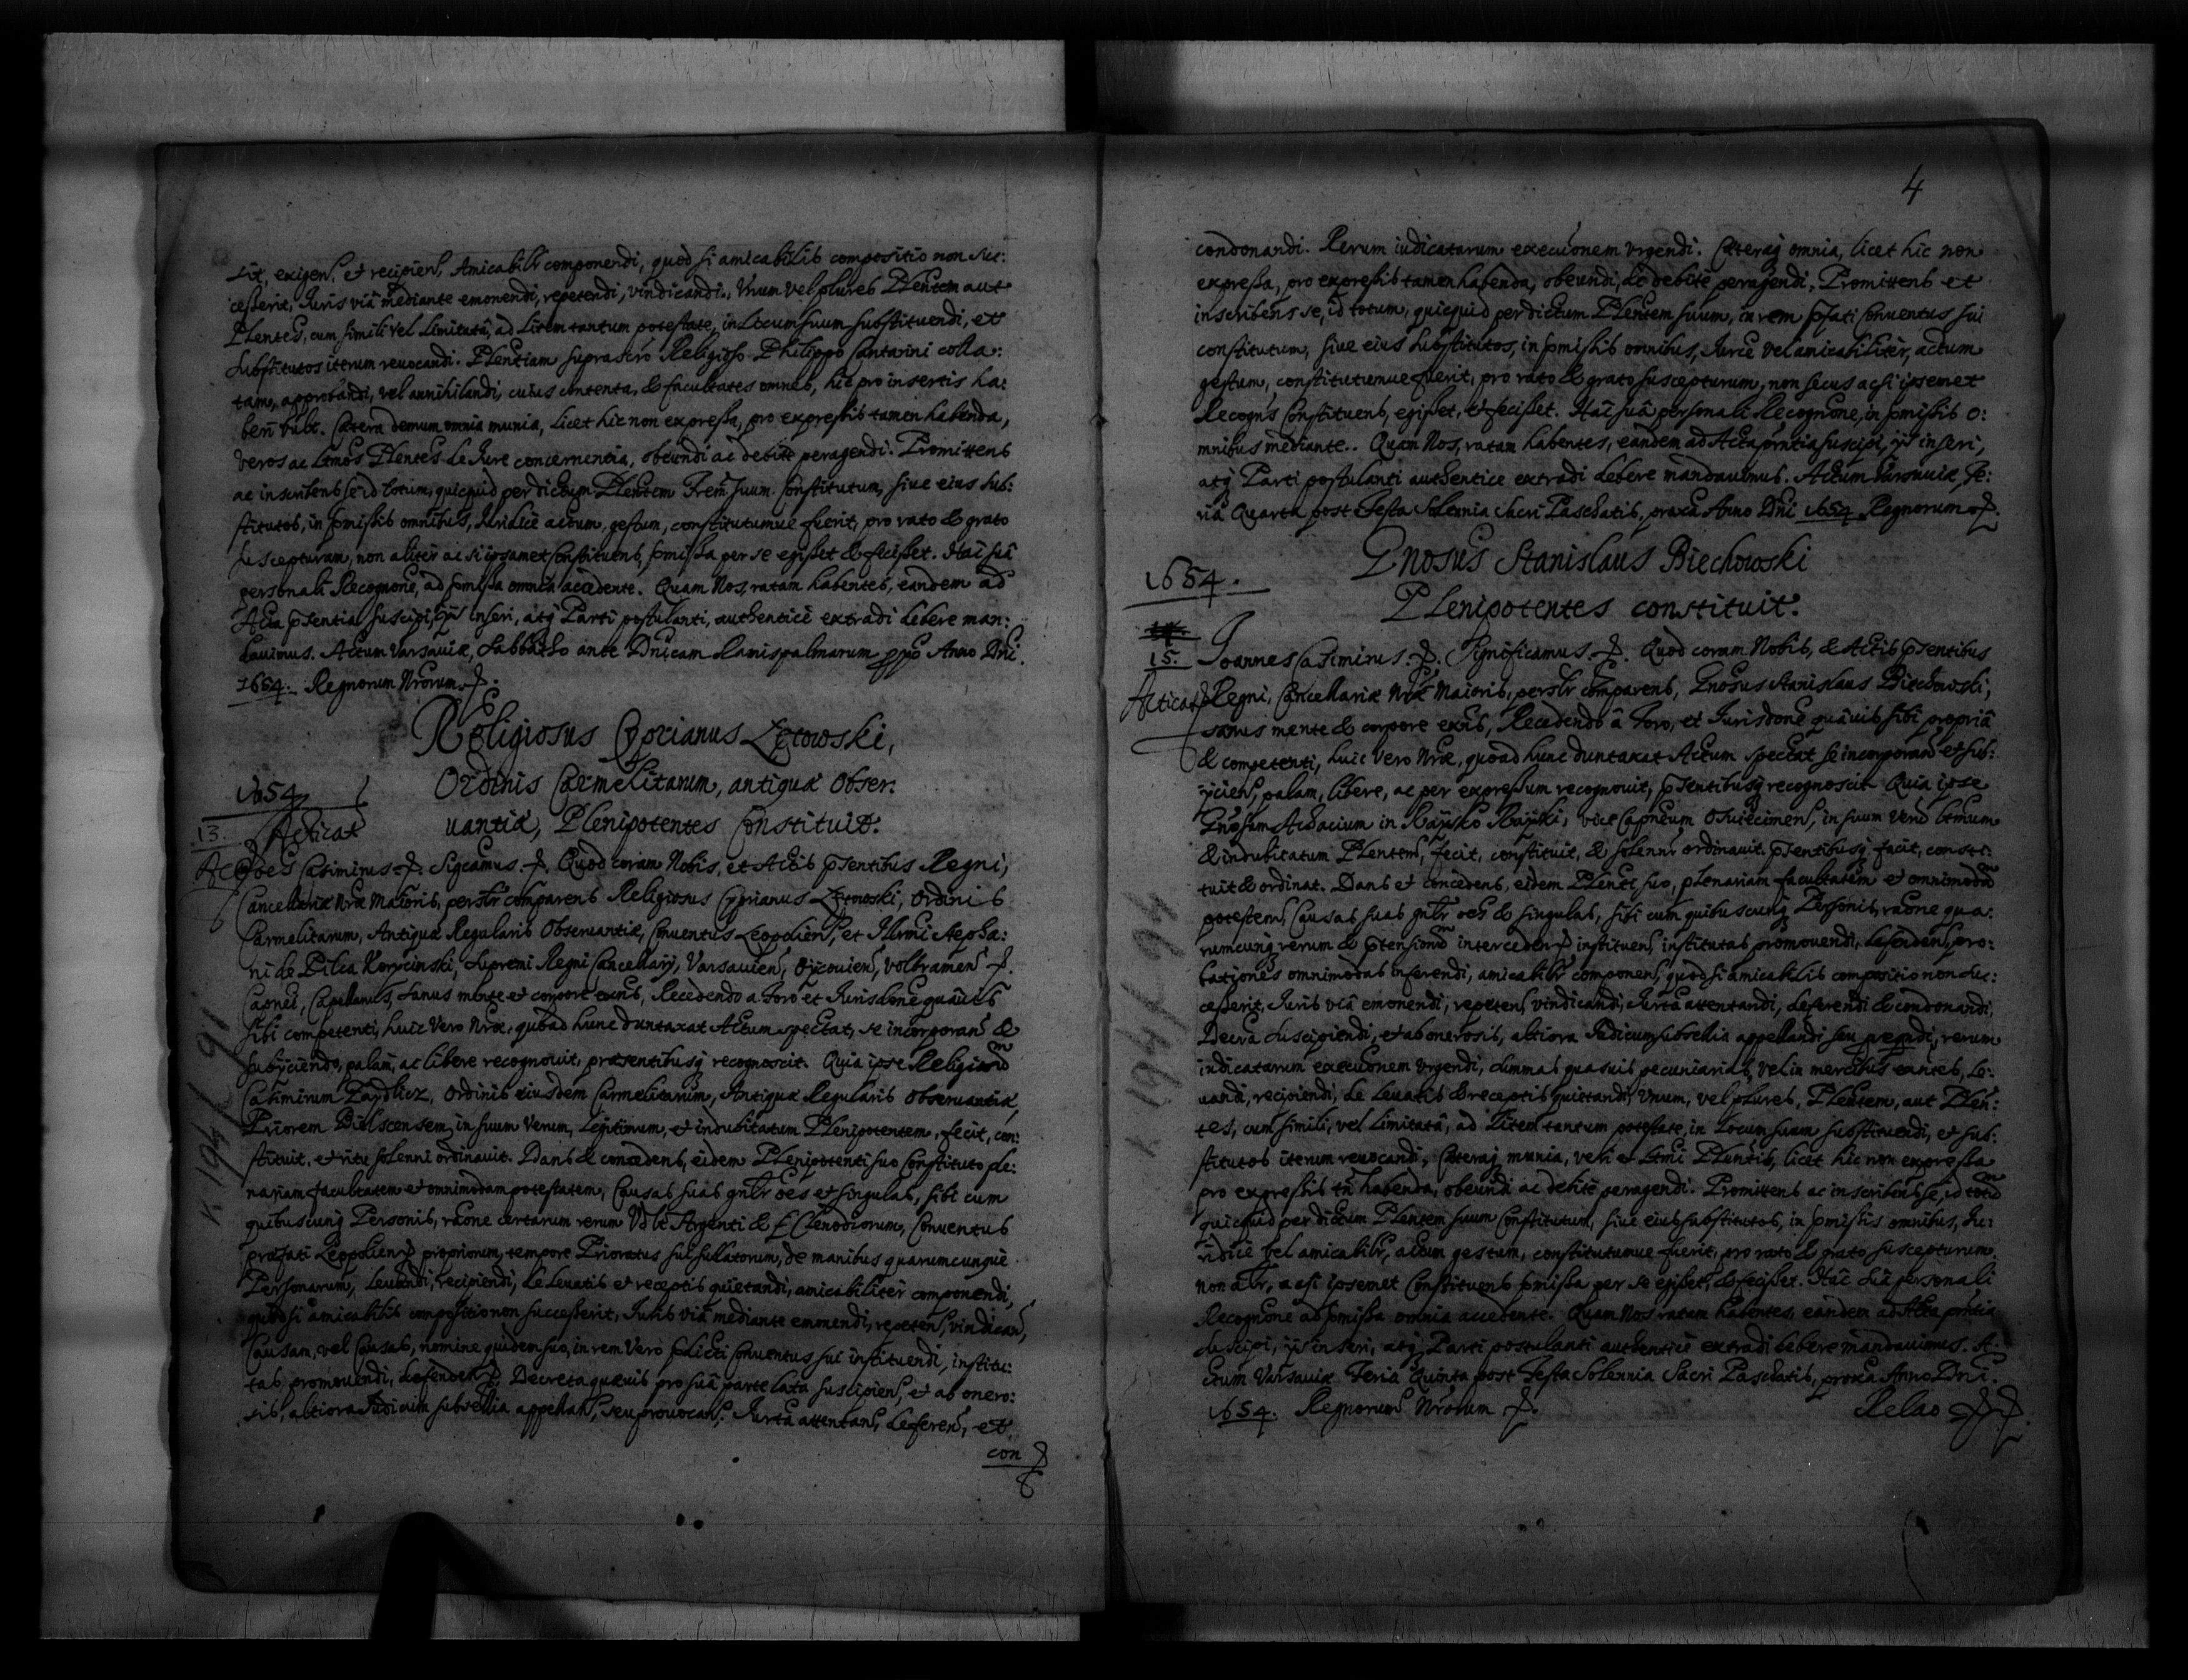 Lit, exigen, et recipien, Amicabilr componendi, quod si amicabilis compositio non suc:
cesserit, Iuris viâ mediante emonendi, repetendi, vindicandi. Vnum vel plures Plentem aut
Plentes, cum simili vel limitatâ, ad Litem tantum potestate, in Locum suum substituendi, et
Substitutos iterum reuocandi. Plentiam suprascro Religioso Philippo Cantarini colla:
tam, approbandi, vel annihilandi, cuius contenta, & facultates omnes, hic pro insertis ha:
beri vult. Cætera demum omnia munia, licet hic non expressa, pro expressis tamen habenda,
veros ac Ltmos Plentes de Iure concernentia, obeundi ac debite peragendi. Promittens
ac inscribens se id totum, quicquid per dictum Plentem Frem suum Constitutum, siue eius sub:
stitutos, in pmissis omnibus, Iuridicè actum, gestum, constitutumue fuerit, pro rato & grato
suscepturam, non aliter ac si ipsamet Constituens, pmissa per se egisset & fecisset. Hac suâ
personali Recognone, ad pmissa omnia accedente. Quam Nos, ratam habentes, eandem ad
Acta psentia suscipi, ijs Inseri, atq Parti postulanti, authenticè extradi debere man:
dauimus. Actum Varsauiæ, Sabbatho ante Dnicam Ramispalmarum ppo Anno Dni.
1654. Regnorum Nrorum.
Religiosus Cyprianus Zętowski,
Ordinis Carmelitarum, antiquæ Obser:
uantiæ, Plenipotentes Constituit.
1654
13. Acticat
Ioes Casimirus. Sigcamus. Quod coram Nobis, et Actis psentibus Regni,
Cancellariæ Nræ Maioris, persolr comparens Religiosus Cyprianus Zętowski, Ordinis
Carmelitarum, Antiquæ Regularis Obseruantiæ, Conuentus Leopolien, et Illrmi Stepha:
ni de Pilca Korycinski, Supremi Regni Cancellarij, Varsauien, Ojcouien, Volbramen
Capnei, Capellanus, sanus mente et corpore exns, Recedendo a Foro et Iurisdone quâuis
sibi competenti, huic Vero Nræ, quoad hunc duntaxat Actum spectat, se incorporan &
subijciendo, palam, ac libere recognouit, præsentibusq recognoscit. Quia ipse Religiosum
Casimirum Zaydlicz, Ordinis eiusdem Carmelitarum, Antiquæ Regularis Obseruantiæ,
Priorem Bielscensem, in suum Verum, Legitimum, et indubitatum Plenipotentem, fecit, con:
stituit, et ritu solenni ordinauit. Dans & concedens, eidem Plenipotenti suo Constituto ple:
nariam facultatem et omnimodam potestatem, Causas suas gnlr oes et singulas, sibi cum
quibuscunq Personis, raone certarum rerum Vdlt Argenti & Clenodiorum, Conuentus
præfati Leopolien propriorum, tempore Prioratus sui sullatorum, de manibus quarumcunque
Personarum, leuandi, recipiendi, de leuatis et receptis quietandi, amicabiliter componendi,
quod si amicabilis compositio non successerit, Iuris viâ mediante emonendi, repeten, vindican,
Causam, vel Causas, nomine quidem suo, in rem Vero pdicti Conuentus sui instituendi, institu:
tas promouendi, defenden. Decreta quæuis pro suâ parte lata suscipien, et ab onero:
sis, ad altiora Iudicium subsellia appellan, seu prouocan. Iurta attentan, deferen, et
con
4
condonandi. Rerum iudicatarum execuonem vrgendi. Cæteraq omnia, licet hic non
expressa, pro expressis tamen habenda, obeundi, ac debitè peragendi. Promittens et
inscribens se, id totum, quicquid per dictum Plentem suum, in rem pfati Conuentus sui
constitutum, siue eius Substitutos, in pmissis omnibus, Iurce vel amicabiliter, actum
gestum, constitutumue fuerit, pro rato & grato suscepturum, non secus acsi ipsemet
Recogns Constituens, egisset, et fecisset. Hac suâ personali Recognone, in pmissis o:
mnibus mediante. Quam Nos, ratam habentes, eandem ad Acta prntia suscipi, ijs inseri,
atq Parti postulanti authentice extradi debere mandauimus. Actum Varsauiæ, Fe:
ria Quarta post Festa Solennia Sacri Paschatis, proxa Anno Dni 1654. Regnorum
Gnosus Stanislaus Biechowski
Plenipotentes constituit.
1654.
15.
Acticat
Ioannes Casimirus. Significamus. Quod coram Nobis, & Actis psentibus
Regni, Cancellariæ Nræ Maioris, persolr comparens, Gnosus Stanislaus Biechowski,
sanus mente & corpore exns, Recedendo â Foro, et Iurisdone quâuis sibi propriâ
& competenti, huic vero Nræ, quoad hunc duntaxat Actum spectat se incorporan et sub:
ijcien, palam, libere, ac per expressum recognouit, psentibusq recognoscit Quia ipse
Gnosum Achacium in Raysko Rayski, vice Capneum Osviecimen, in suum Verum Ltmum
& indubitatum Plentem, fecit, constituit, & solennr ordinauit. psentibusq facit, consti:
tuit & ordinat. Dans et concedens, eidem Plenti suo, plenariam facultatem et omnimodam
potestem, Causas suas gnlr oes & singulas, sibi cum quibuscunq Personis, raone qua:
rumcunq rerum & ptensionum intercedend instituen, institutas promouendi, defenden, pro:
bationes omnimodas inferendi, amicabilr componen, quod si amicabilis compositio non suc:
cesserit, Iuris viâ emonendi, repeten, vindicandi, Iurta attentandi, deferendi & condonandi,
Decra suscipiendi, et ab onerosis, altiora Iudicium subsellia appellandi seu rerum
iudicatarum execuonem vrgendi, summas quasuis pecuniarias, vel in mercibus exntes, le:
uandi, recipiendi, de leuatis & receptis quietandi, Vnum, vel plures, Plentem, aut Plen:
tes, cum simili, vel limitatâ, ad Litem tantum potestate, in Locum suum substituendi, et sub:
stitutos iterum reuocandi, Cæteraq munia, veri et Ltmi Plentis, licet hic non expressa
pro expressis tn habenda, obeundi ac debitè peragendi. Promittens ac inscribens se, id totum
quicquid per dictum Plentem suum Constitutum, siue eius substitutos, in pmissis omnibus, Iu:
ridice vel amicabilr, actum gestum, constitutumue fuerit, pro rato & grato suscepturum
non alr, ac si ipsemet Constituens pmissa per se egisset, & fecisset. Hac suâ personali
Recognone ad pmissa omnia accedente. Quam Nos ratam habentes, eandem ad Acta prntia
suscipi, ijs inseri, atq Parti postulanti authenticè extradi debere mandauimus. A:
ctum Varsauiæ Feria Quinta post Festa Solennia Sacri Paschatis, proxa Anno Dni.
1654. Regnorum Nrorum
Relao